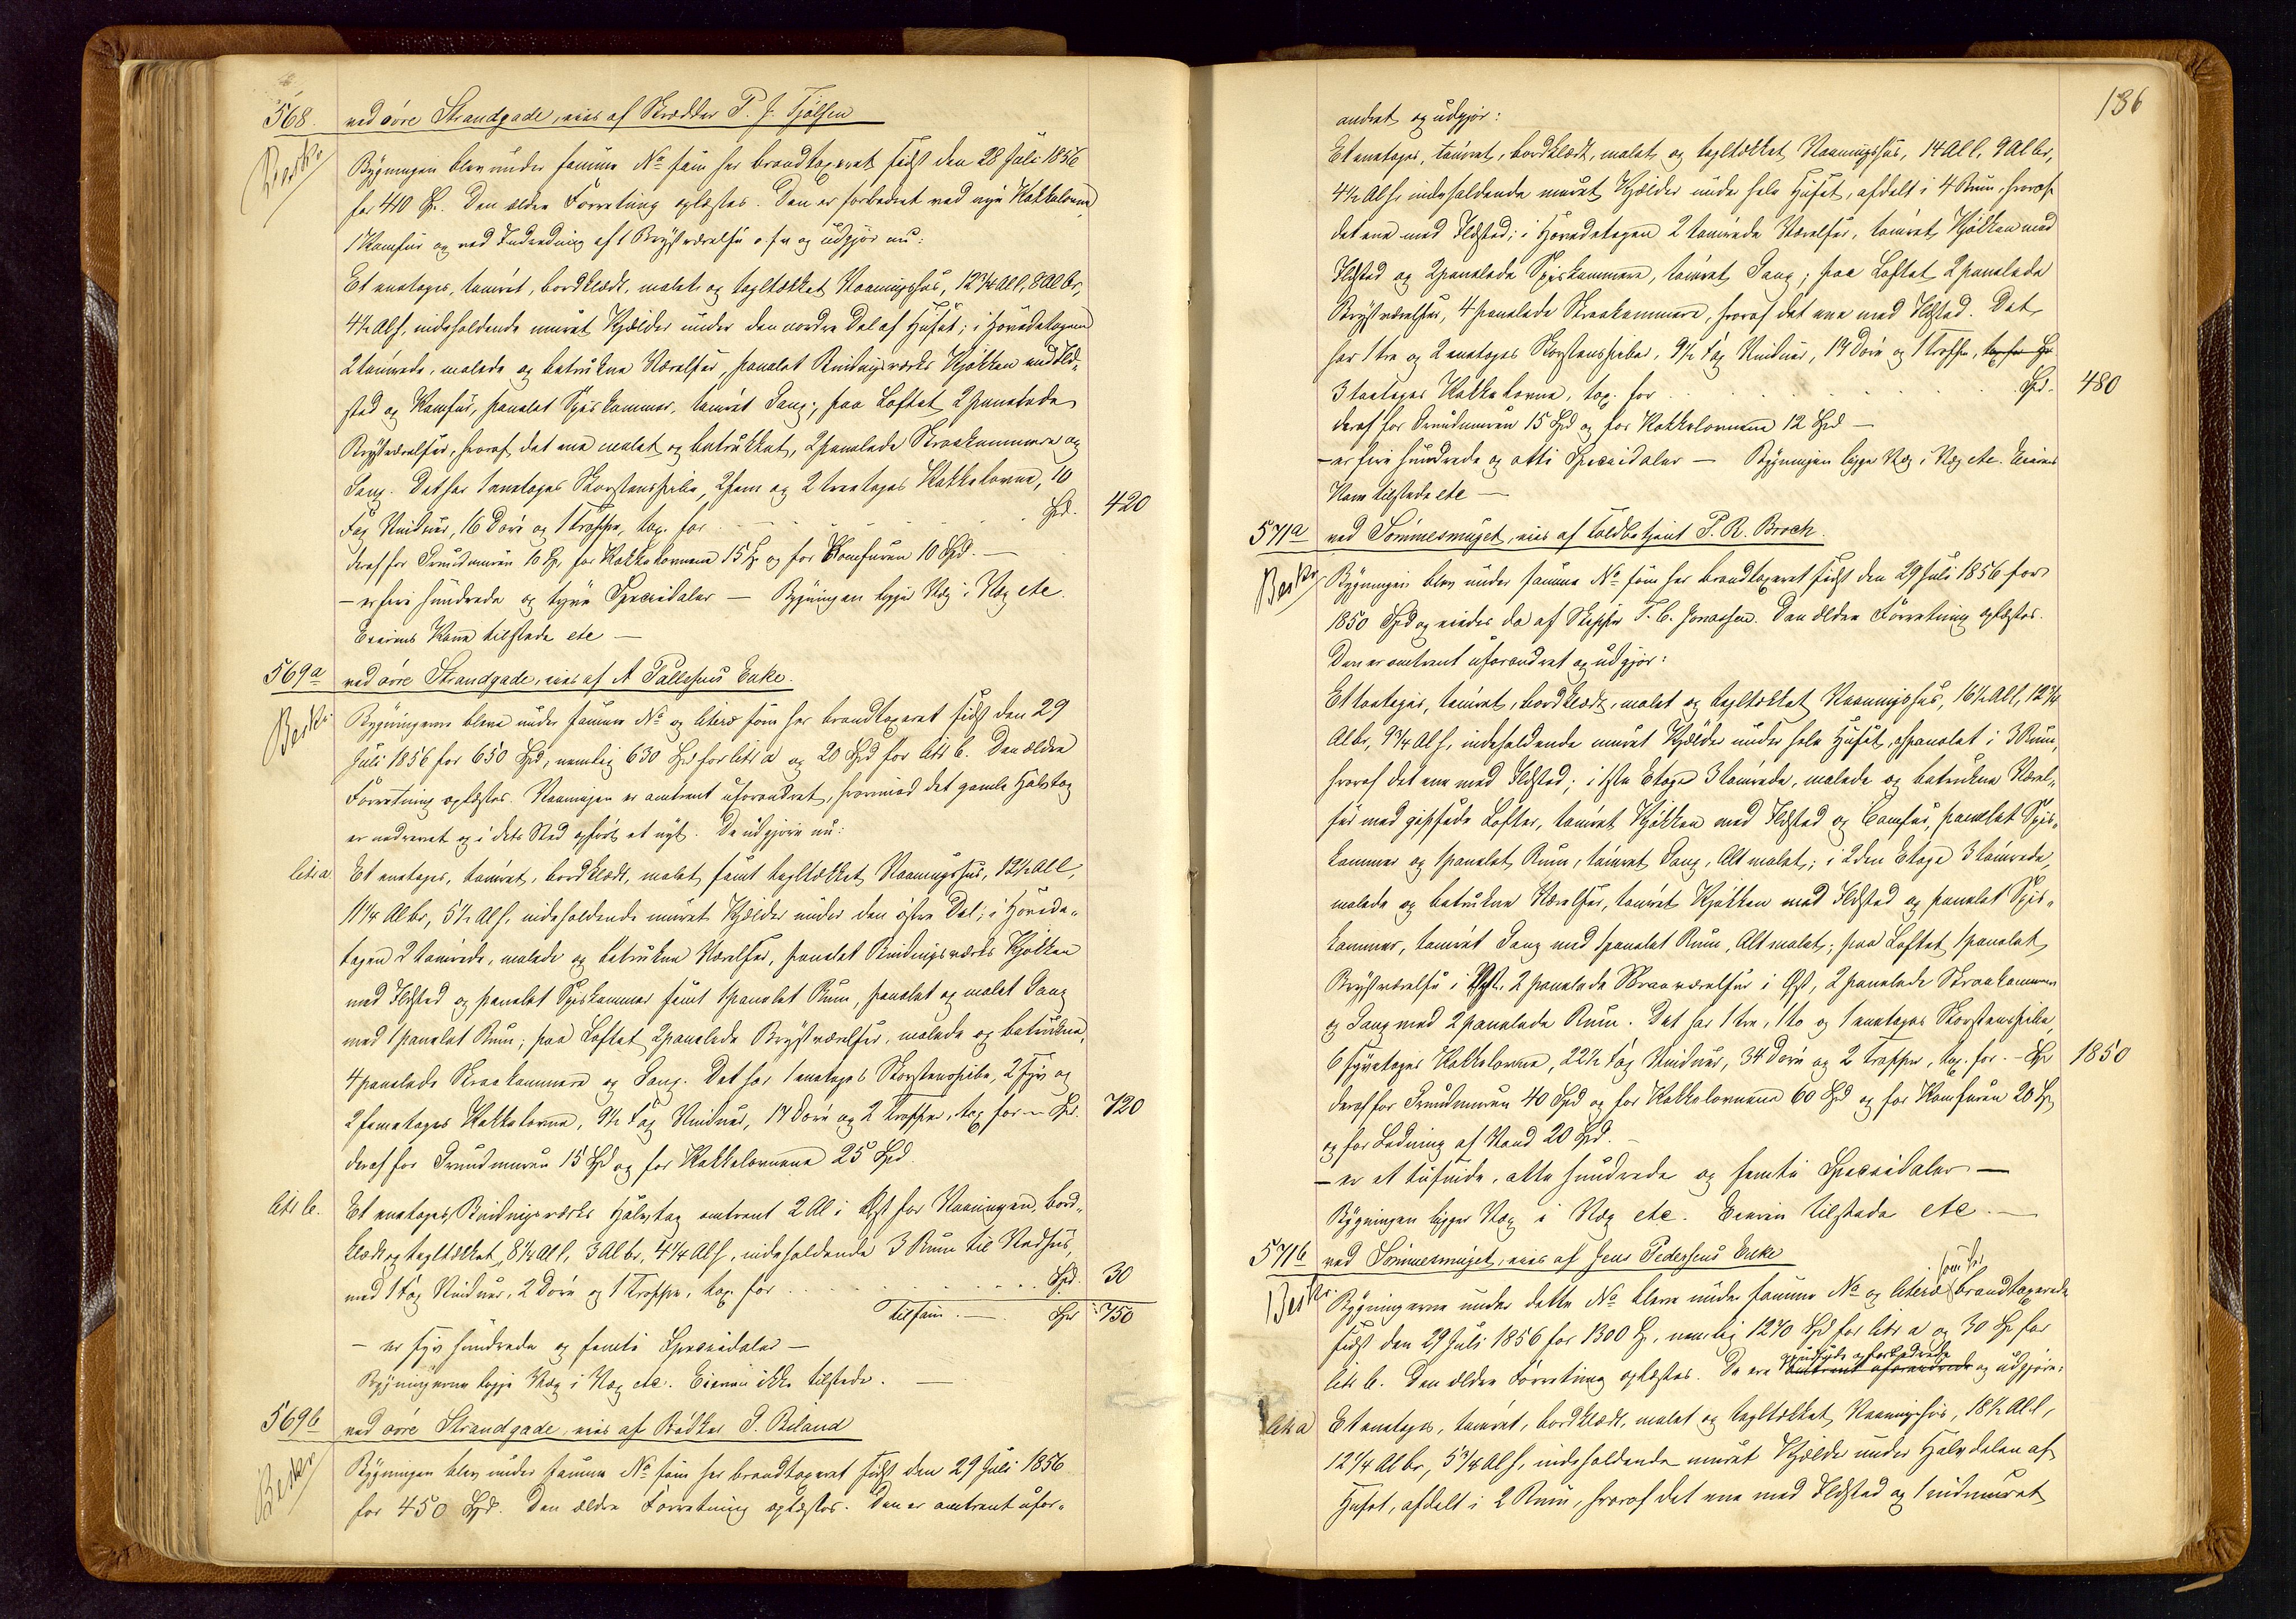 568. ved øvre Strandgade, eies af Skrædder P. J. Tjølsen
Beskr. Bygningen blev under samme No som her brandtaxeret sidst den 28 Juli 1856
for 410 Sp. Den ældre Forretning oplæstes. Den er forbedret ved nye Kakkelovne,
1 Komfur og ved Indredning af 1 Brystværelse o. s. v. og udgjør nu:
Et enetages, tømret, bordklædt, malet og tegltækket Vaaningshus, 12 3/4 Al l, 8 Al br,
4 1/2 Al h, indeholdende muret Kjælder under den nordre Del af Huset; i Hovedetagen
2 tømrede, malede og betrukne Værelser, panelet Bindingsværks Kjøkken med Ild-
sted og Komfur, panelet Spiskammer, tømret Gang; paa Loftet 2 panelede
Brystværelser, hvoraf det ene malet og betrukket, 2 panelede Skraakammere og
Gang. Det har 1 enetages Skorstenspibe, 2 fem og 2 treetages Kakkelovne, 10
Fag Vinduer, 16 Døre og 1 Trappe, tax. for . . . Spd. 420
deraf for Grundmuren 10 Sp, for Kakkelovnene 15 Sp og for Komfuren 10 Spd. —
— er fire hundrede og tyve Speciedaler — Bygningen ligger Væg i Væg etc.
Eierens Kone tilstede etc —
569a ved øvre Strandgade, eies af A Pallesens Enke.
Beskr. Bygningerne bleve under samme No og litera som her brandtaxeret sidst den 29
Juli 1856 for 650 Spd, nemlig 630 Spd for litr a og 20 Spd for litr b. Den ældre
Forretning oplæstes. Vaaningen er omtrent uforandret, hvorimod det gamle Halvtag
er nedrevet og i dets Sted opført et nyt. De udgjøre nu:
litr a Et enetages, tømret, bordklædt, malet samt tegltækket Vaaningshus, 12 1/2 Al l,
11 1/4 Al br, 5 1/2 Al h, indeholdende muret Kjælder under den østre Del; i Hovede-
tagen 2 tømrede, malede og betrukne Værelser, panelet Bindingsværks Kjøkken
med Ildsted og panelet Spiskammer samt 1 panelet Rum, panelet og malet Gang
med 1 panelet Rum; paa Loftet 2 panelede Brystværelser, malede og betrukne,
4 panelede Skraakammere og Gang. Det har 1 enetages Skorstenspibe, 2 syv og
2 femetages Kakkelovne, 9 1/2 Fag Vinduer, 17 Døre og 2 Trapper, tax for — Spd. 720
deraf for Grundmuren 15 Spd og for Kakkelovnene 25 Spd.
litr b. Et enetages Bindingsværks Halvtag omtrent 2 Al i Øst for Vaaningen, bord-
klædt og tegltækket, 8 1/4 Al l, 3 Al br, 4 1/4 Al h, indeholdende 3 Rum til Vedhus,
med 1 Fag Vinduer, 2 Døre og 1 Trappe, tax for . . . Spd. 30
Tilsam. — Spd 750
— er syv hundrede og femti Speciedaler —
Bygningerne ligge Væg i Væg etc. Eieren ikke tilstede. —
569b ved øvre Strandgade, eies af Bødker P. Biland
Beskr Bygningen blev under samme No som her brandtaxeret sidst den 29 Juli 1856
for 450 Spd. Den ældre Forretning oplæstes. Den er omtrent ufor-
186
andret og udgjør:
Et enetages, tømret, bordklædt, malet og tegltækket Vaaningshus, 14 Al l, 9 Al br,
4 1/2 Al h, indeholdende muret Kjælder under hele Huset, afdelt i 4 Rum, hvoraf
det ene med Ildsted; i Hovedetagen 2 tømrede Værelser, tømret Kjøkken med
Ildsted og 2 panelede Spiskammere, tømret Gang; paa Loftet 2 panelede
Brystværelser, 4 panelede Skraakammere, hvoraf det ene med Ildsted. Det
har 1 tre og 2 enetages Skorstenspiber, 9 1/2 Fag Vinduer, 19 Døre og 1 Trappe, tax for Sp
3 toetages Kakkelovne, tax. for . . . Spd. 480
deraf for Grundmuren 15 Spd og for Kakkelovnene 12 Spd —
— er fire hundrede og otti Speciedaler — Bygningen ligger Væg i Væg etc. Eierens
Kone tilstede etc —
571a ved Tømmesmuget, eies af Toldbetjent P. R. Broch.
Beskr Bygningen blev under samme No som her brandtaxeret sidst den 29 Juli 1856 for
1850 Spd og eiedes da af Skipper T. C. Jonassen. Den ældre Forretning oplæstes.
Den er omtrent uforandret og udgjør:
Et toetages, tømret, bordklædt, malet og tegltækket Vaaningshus, 16 1/2 Al l, 12 3/4
Al br, 9 3/4 Al h, indeholdende muret Kjælder under hele Huset, afpanelet i 3 Rum,
hvoraf det ene med Ildsted; i 1ste Etage 3 tømrede, malede og betrukne Værel-
ser med gipsede Lofter, tømret Kjøkken med Ildsted og Comfur, panelet Spis-
kammer og 1 panelet Rum, tømret Gang, Alt malet; i 2den Etage 3 tømrede,
malede og betrukne Værelser, tømret Kjøkken med Ildsted og panelet Spis-
kammer, tømret Gang med 1 panelet Rum, Alt malet; paa Loftet 1 panelet
Brystværelse i Vest, 2 panelede Skraaværelser i Øst, 2 panelede Skraakammere
og Gang med 2 panelede Rum. Det har 1 tre, 1 to og 1 enetages Skorstenspibe,
6 syvetages Kakkelovne, 22 1/2 Fag Vinduer, 34 Døre og 2 Trapper, tax. for. — Spd 1850
deraf for Grundmuren 40 Spd og for Kakkelovnene 60 Spd og for Komfuren 20 Sp
og for Ledning af Vand 20 Spd. —
— er et tusinde, otte hundrede og femti Speciedaler —
Bygningen ligger Væg i Væg etc. Eieren tilstede etc. —
571b ved Tømmesmuget, eies af Jens Pedersens Enke
Beskr. Bygningerne under dette No bleve under samme No og litera som her brandtaxerede
sidst den 29 Juli 1856 for 1300 Sp, nemlig 1270 Spd for litr a og 30 Sp for
litr b. Den ældre Forretning oplæstes. De ere omtrent uforandrede og forbedrede og udgjøre:
litr a Et enetages, tømret, bordklædt, malet og tegltækket Vaaningshus, 18 1/2 Al l,
12 1/4 Al br, 5 3/4 Al h, indeholdende muret Kjælder under Halvdelen af
Huset, afdelt i 2 Rum, hvoraf det ene med Ildsted og 1 indmuret